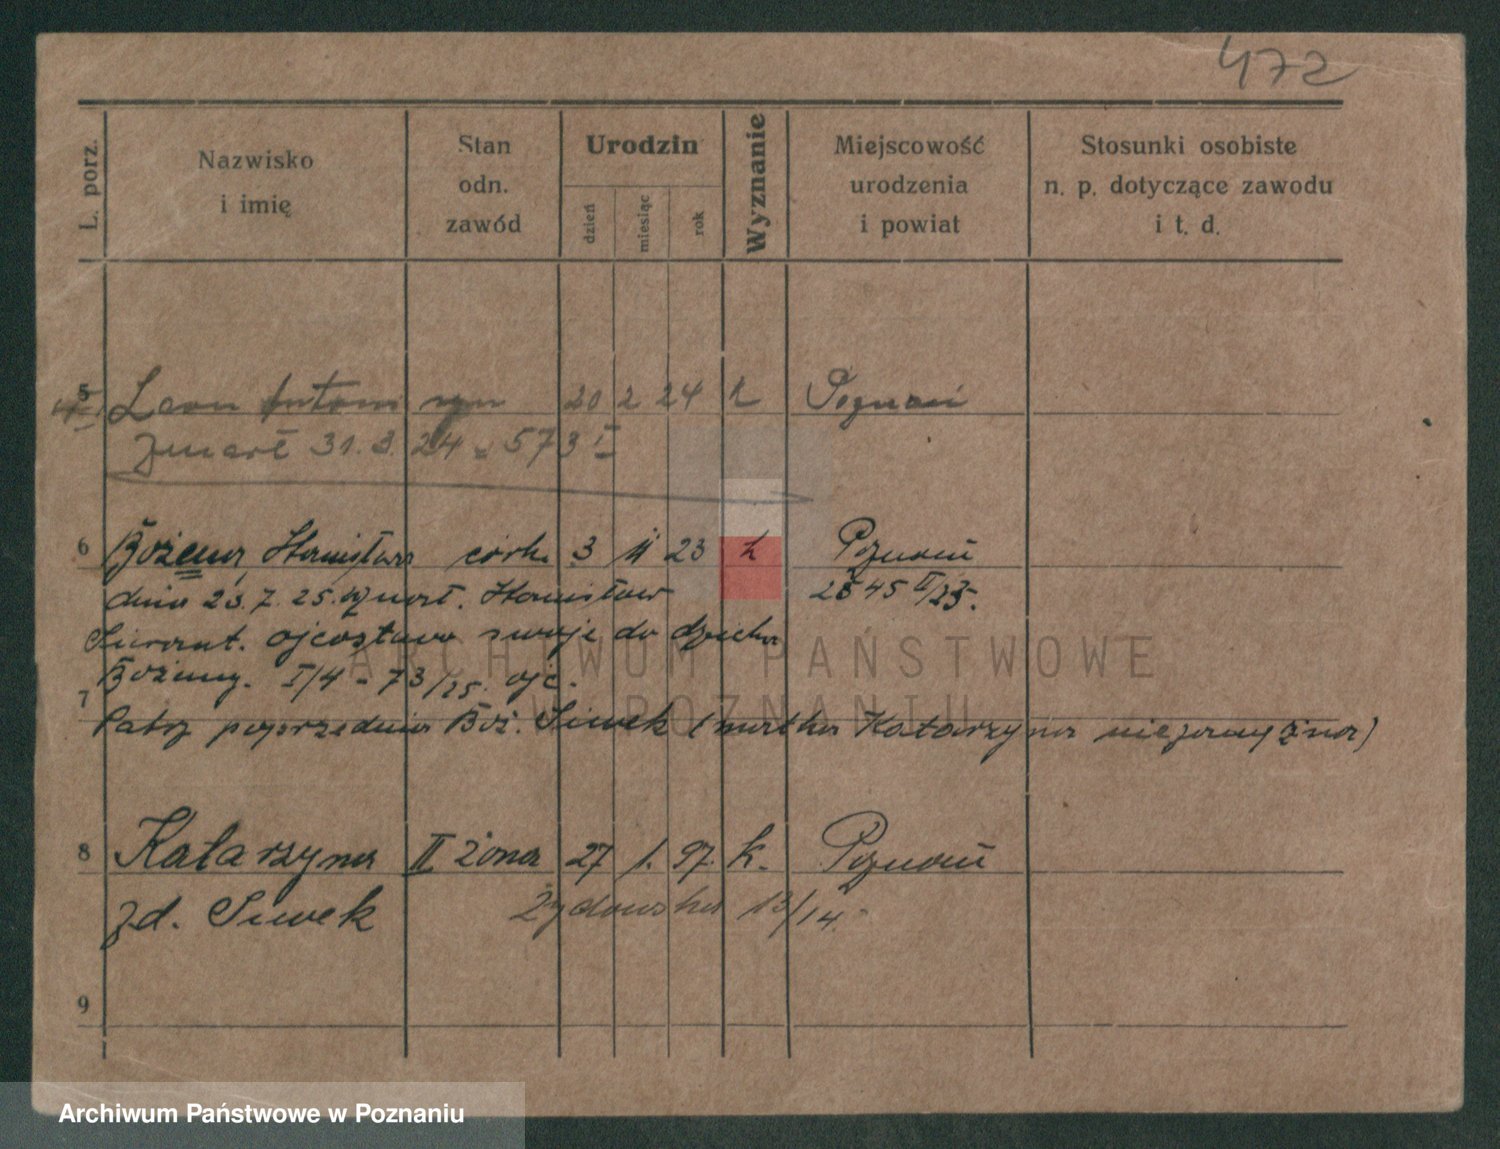 472
L. porz.
Nazwisko i imię
Stan odn. zawód
Urodzin
dzień miesiąc rok
Wyznanie
Miejscowość urodzenia i powiat
Stosunki osobiste n. p. dotyczące zawodu i t. d.
5 Leon Antoni syn 20 2 24 k Poznań
Zmarł 31.3.24 = 573 I
6 Bożena, Stanisława córk. 3 23 k Poznań
dnia 23.7.25. uznał. Stanisław 2845 II/25.
ojcostwo swoje do dziecka
Bożeny. I/4 - 73/25. ojc.
7
Patrz poprzednio Boż. Siwek (matka Katarzyna niezamężna)
8 Katarzyna II żona 27 1. 97. k. Poznań
zd. Siwek Żydowska 13/14.
9
ARCHIWUM PAŃSTWOWE
W POZNANIU
Archiwum Państwowe w Poznaniu